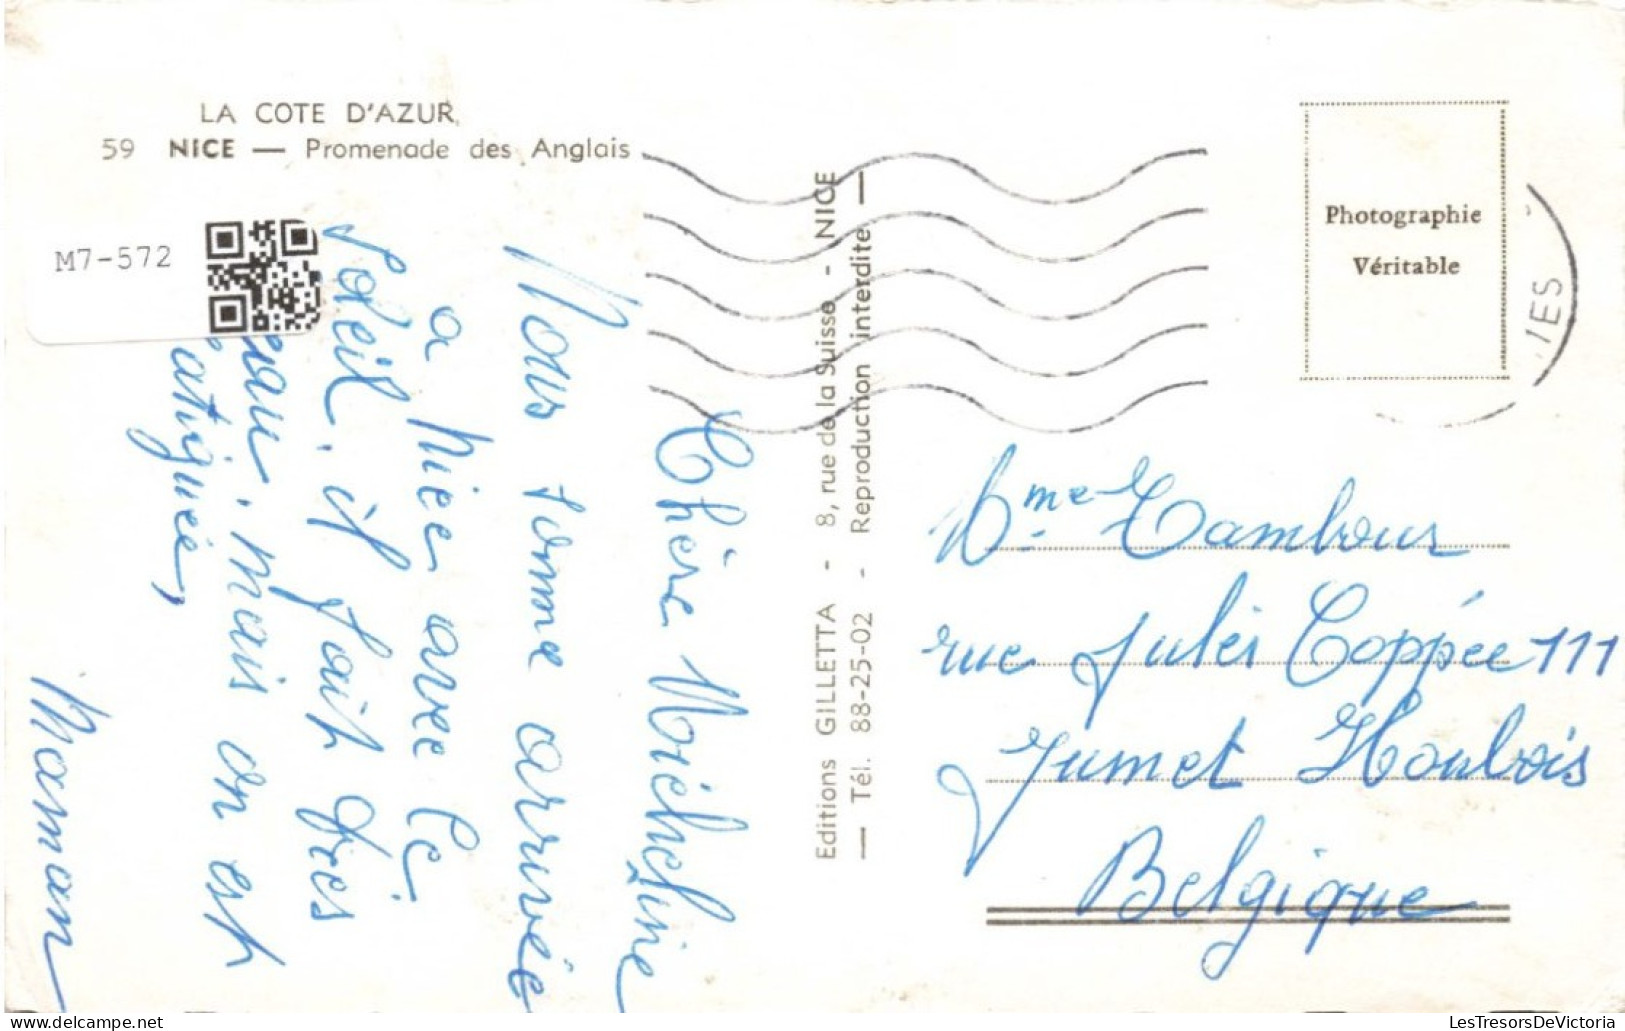 LA COTE D'AZUR
59 NICE — Promenade des Anglais
M7-572
Chère Micheline
Nous somme arrivée
à Nice avec le
Soleil, il fait très
eau, mais on est
atiguée,
Maman
Editions GILLETTA - 8, rue de la Suisse - NICE
— Tél. 88-25-02 - Reproduction interdite —
Photographie
Véritable
MES
Mme Tambour
rue Jules Coppée 111
Jumet Houbois
Belgique
LesTresorsDeVictoria